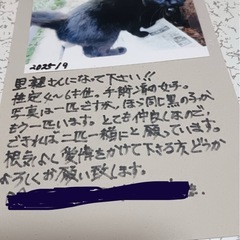 2025/9
里親さんになって下さい!!
推定4〜6才位、手術済の女子。
写真は一匹ですが、ほぼ同じ黒のこが
もう一匹います。とても仲良しなので、
できれば二匹一緒にと願っています。
根気よく愛情をかけて下さる方どうか
よろしくお願い致します。